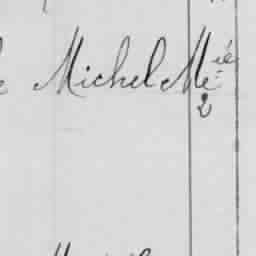 Michel Me ié
2